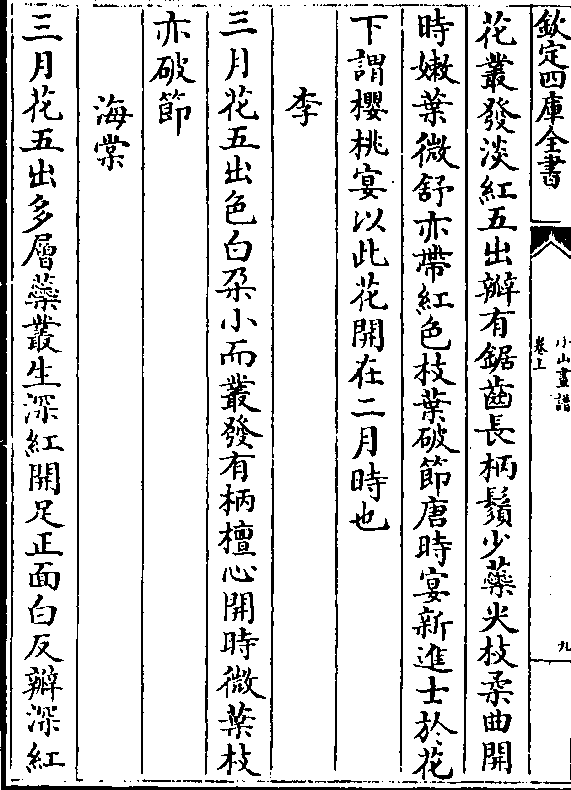 欽定四庫全書
小山畫譜
卷上
九
花叢發淡紅五出瓣有鋸齒長柄鬚少蘂尖枝柔曲開
時嫩葉微舒亦帶紅色枝葉破節唐時宴新進士於花
下謂櫻桃宴以此花開在二月時也
李
三月花五出色白朶小而叢發有柄檀心開時微葉枝
亦破節
海棠
三月花五出多層蘂叢生深紅開足正面白反瓣深紅